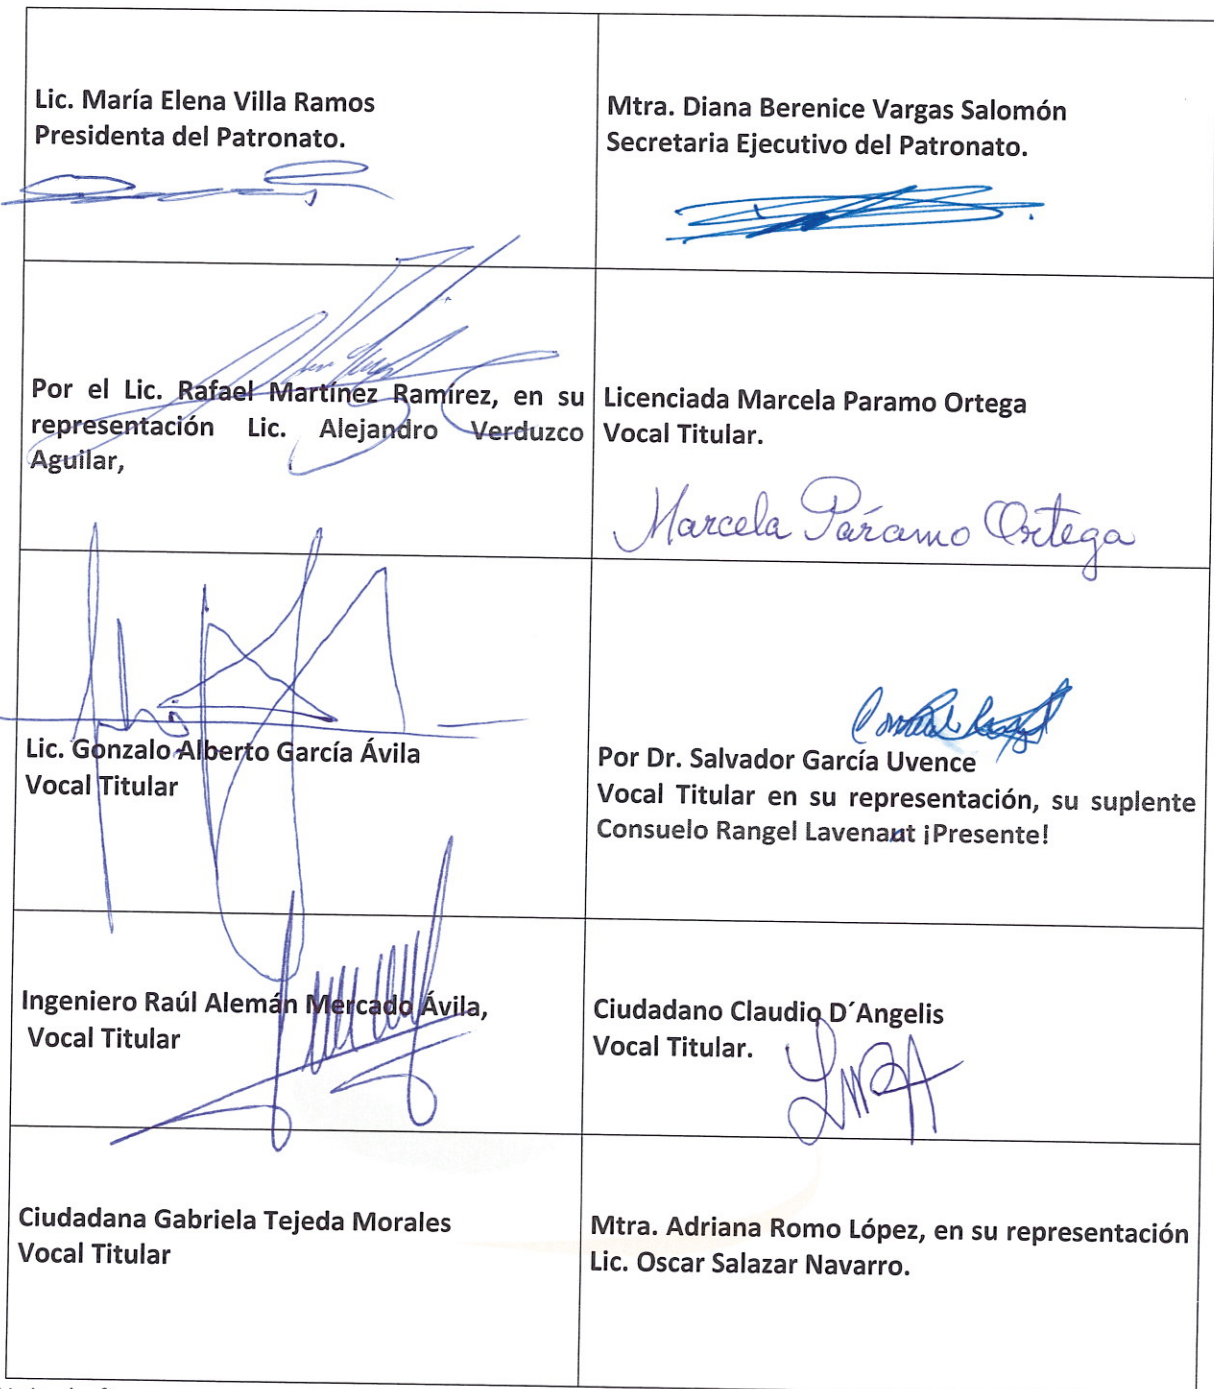 Lic. María Elena Villa Ramos
Presidenta del Patronato.
Mtra. Diana Berenice Vargas Salomón
Secretaria Ejecutivo del Patronato.
Por el Lic. Rafael Martínez Ramírez, en su
representación Lic. Alejandro Verduzco
Aguilar,
Licenciada Marcela Paramo Ortega
Vocal Titular.
Marcela Páramo Ortega
Lic. Gonzalo Alberto García Ávila
Vocal Titular
Por Dr. Salvador García Uvence
Vocal Titular en su representación, su suplente
Consuelo Rangel Lavenant ¡Presente!
Ingeniero Raúl Alemán Mercado Ávila,
Vocal Titular
Ciudadano Claudio D´Angelis
Vocal Titular.
Ciudadana Gabriela Tejeda Morales
Vocal Titular
Mtra. Adriana Romo López, en su representación
Lic. Oscar Salazar Navarro.